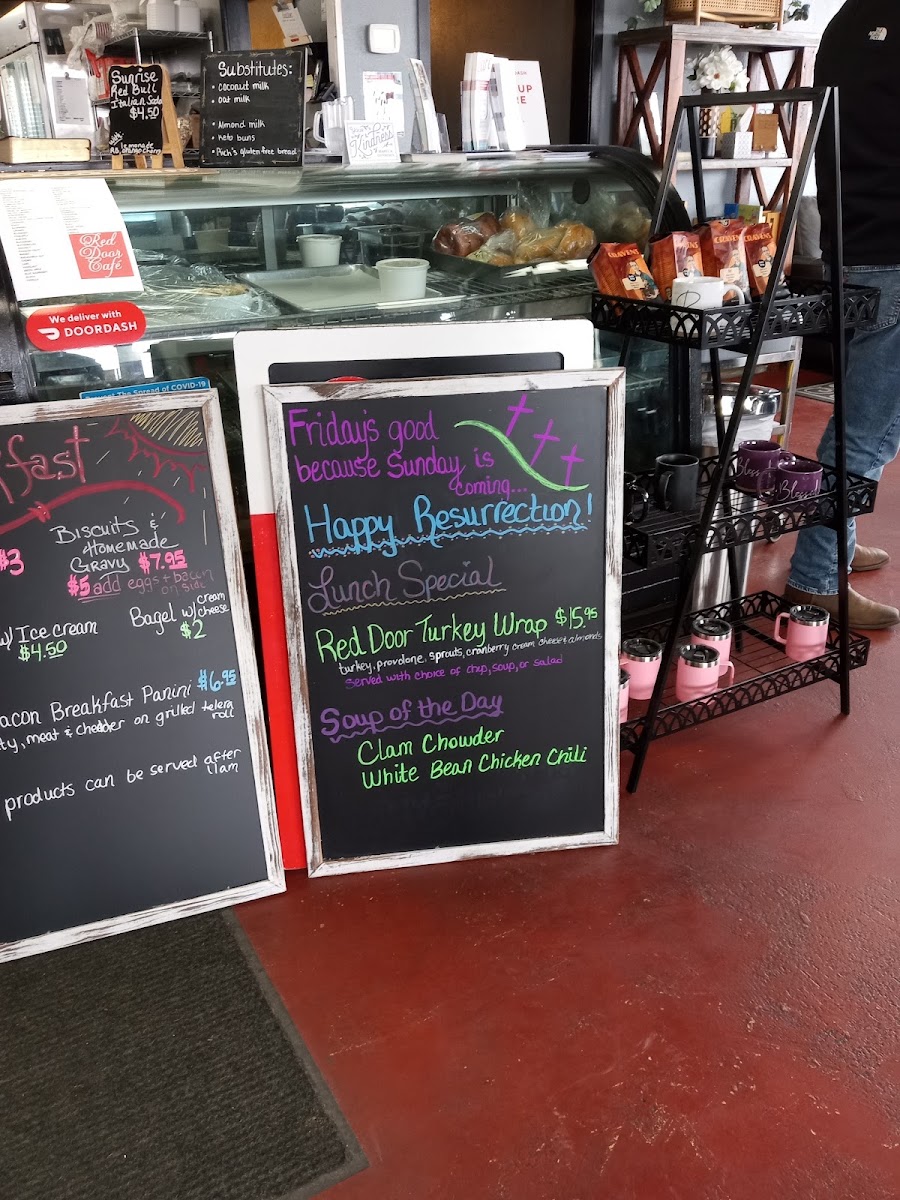 Sunrise
Red Bull
Italian Soda
$4.50
Substitutes:
• coconut milk
• oat milk
• Almond milk
• keto buns
• Rich's gluten free bread
Kindness
Red
Door
Café
We deliver with
DOORDASH
The Spread of COVID-19
fast
Biscuits &
Homemade
Gravy $7.95
$5 add eggs + bacon
on side
$3
w/ Ice cream
$4.50
Bagel w/ cream
cheese
$2
acon Breakfast Panini $6.95
ty, meat & chedder on grilled telera
roll
products can be served after
11am
Friday's good
because Sunday is
coming...
Happy Resurrection!
Lunch Special
Red Door Turkey Wrap $15.95
turkey, provolone, sprouts, cranberry cream cheese & almonds
served with choice of chip, soup, or salad
Soup of the Day
Clam Chowder
White Bean Chicken Chili
Blessed